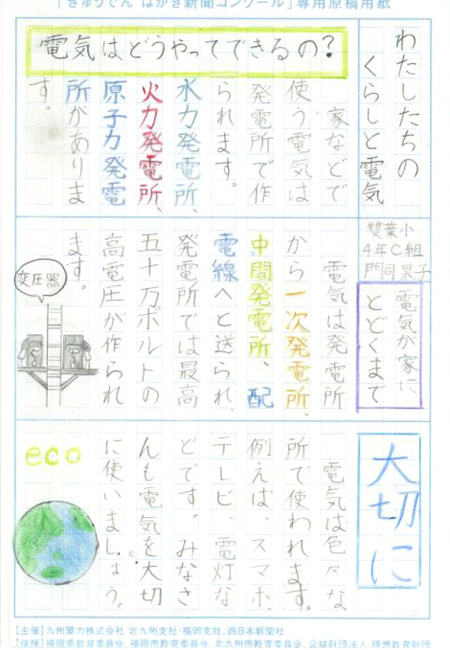 「きゅうでん はがき新聞コンクール」専用原稿用紙
わたしたちの
くらしと電気
雙葉小
4年C組
電気はどうやってできるの?
家などで
使う電気は
発電所で作
られます。
水力発電所、
火力発電所、
原子力発電
所がありま
す。
電気が家に
とどくまで
電気は発電所
から一次発電所、
中間発電所、配
電線へと送られ、
発電所では最高
五十万ボルトの
高電圧が作られ
ます。
変圧器
大切に
電気は色々な
所で使われます。
例えば、スマホ、
テレビ、電灯な
どです。みなさ
んも電気を大切
に使いましょう。
eco
【主催】九州電力株式会社 北九州支社・福岡支社、西日本新聞社
【後援】福岡県教育委員会、福岡市教育委員会、北九州市教育委員会、公益財団法人 理想教育財団